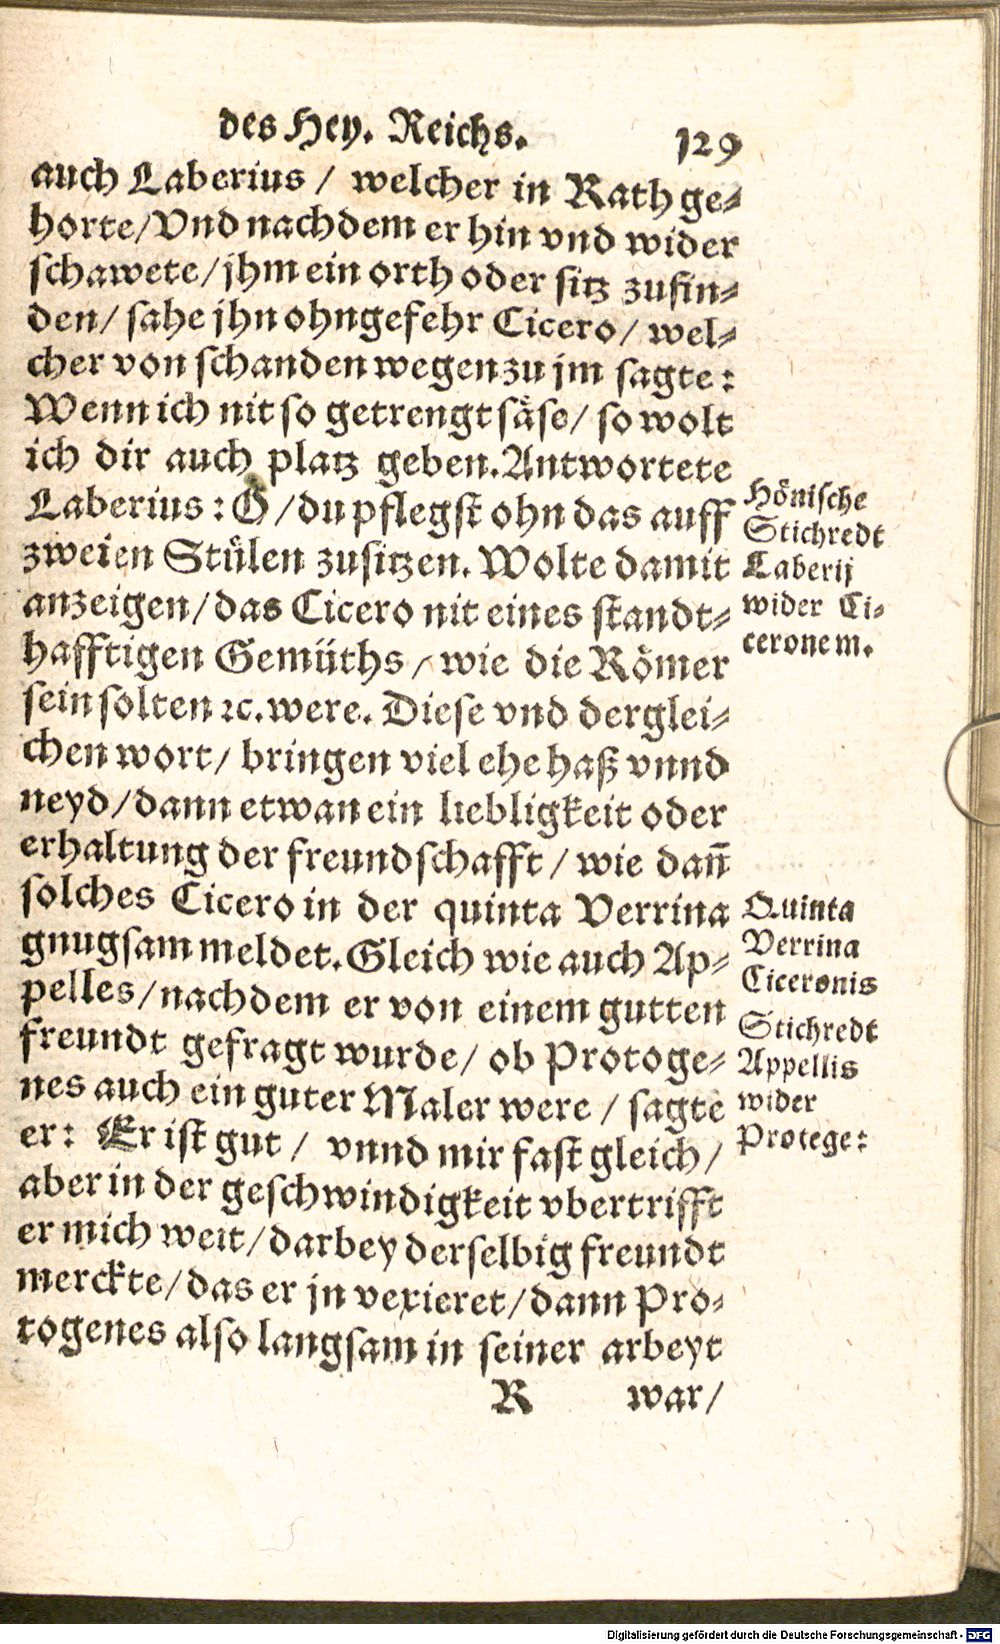 des Hey. Reichs. 129
auch Laberius / welcher in Rath ge⸗
horte/Vnd nachdem er hin vnd wider
schawete/jhm ein orth oder sitz zufin⸗
den/ sahe jhn ohngefehr Cicero/ wel⸗
cher von schanden wegen zu jm sagte:
Wenn ich nit so getrengt säse/ so wolt
ich dir auch platz geben. Antwortete
Laberius: O/du pflegst ohn das auff
zweien Stülen zusitzen. Wolte damit
anzeigen/das Cicero nit eines standt⸗
hafftigen Gemüths/ wie die Römer
sein solten ꝛc. were. Diese vnd derglei⸗
chen wort/ bringen viel ehe haß vnnd
neyd/dann etwan ein liebligkeit oder
erhaltung der freundschafft/ wie dañ
solches Cicero in der quinta Verrina
gnugsam meldet. Gleich wie auch Ap⸗
pelles/nachdem er von einem gutten
freundt gefragt wurde/ ob Protoge⸗
nes auch ein guter Maler were / sagte
er: Er ist gut / vnnd mir fast gleich/
aber in der geschwindigkeit vbertrifft
er mich weit/darbey derselbig freundt
merckte/das er jn vexieret/dann Pro⸗
togenes also langsam in seiner arbeyt
R war/
Hönische
Stichredt
Laberij
wider Ci⸗
ceronem.
Quinta
Verrina
Ciceronis
Stichredt
Appellis
wider
Protege:
Digitalisierung gefördert durch die Deutsche Forschungsgemeinschaft - DFG